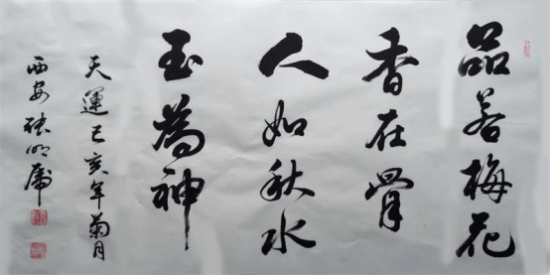 品若梅花
香在骨
人如秋水
玉為神
天運己亥年菊月
西安張明虎